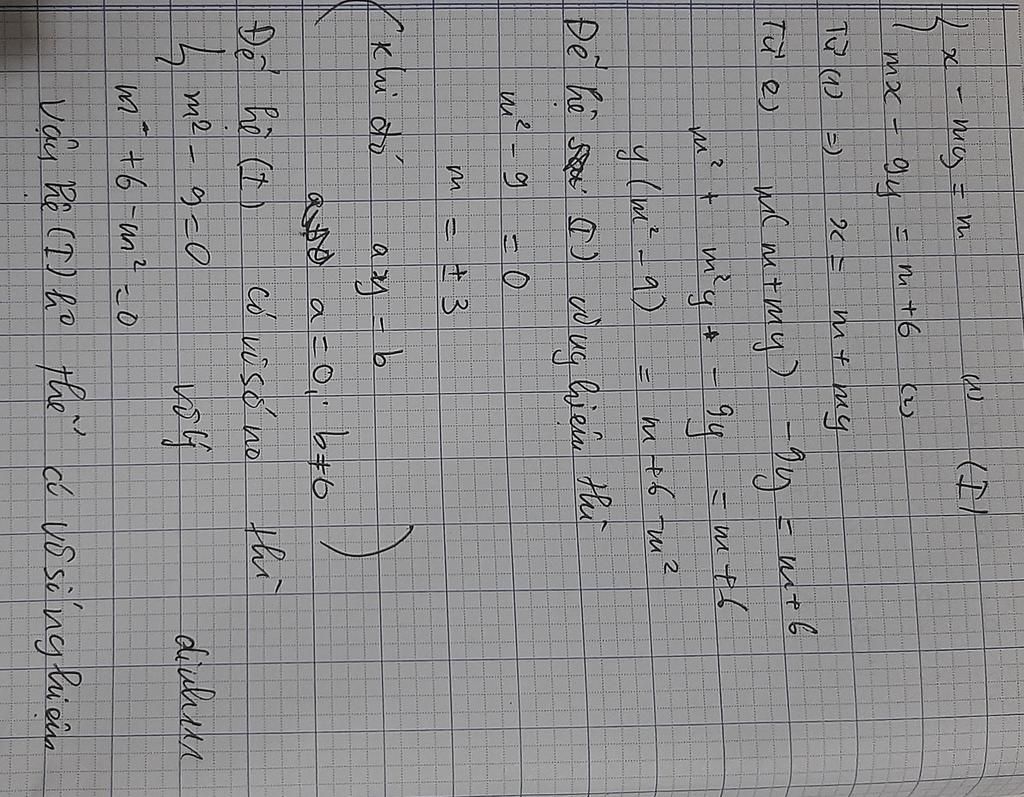 { x - my = m (1)
{ mx - 9y = m + 6 (2) (I)
Từ (1) => x = m + my
Từ (2) m(m + my) - 9y = m + 6
m² + m²y - 9y = m + 6
y(m² - 9) = m + 6 - m²
Để hệ (I) vô nghiệm thì
m² - 9 = 0
m = ± 3
(khi đó ay = b
a = 0; b ≠ 0)
Để hệ (I) có vô số no thì
{ m² - 9 = 0 vô lý
m + 6 - m² = 0
Vậy hệ (I) ko thể có vô số nghiệm